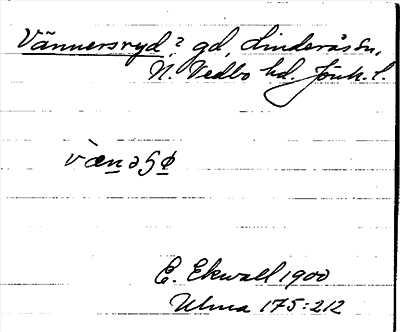 Vännersryd? gd, Linderås sn,
N. Vedbo hd. Jönk. l.
vænəʂø
E. Ekwall 1900
Ulma 175:212